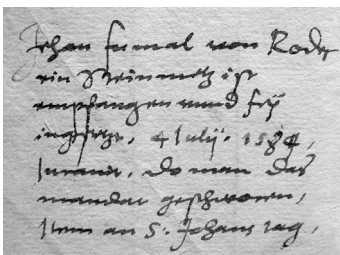 Jehan fumal von Roder
ein Steinmetz ist
empfangen unnd frÿ
ingesetzt, 4 Julÿ. 1584,
Juravit, do man das
mandat geschworen,
Item an S. Johans tag,